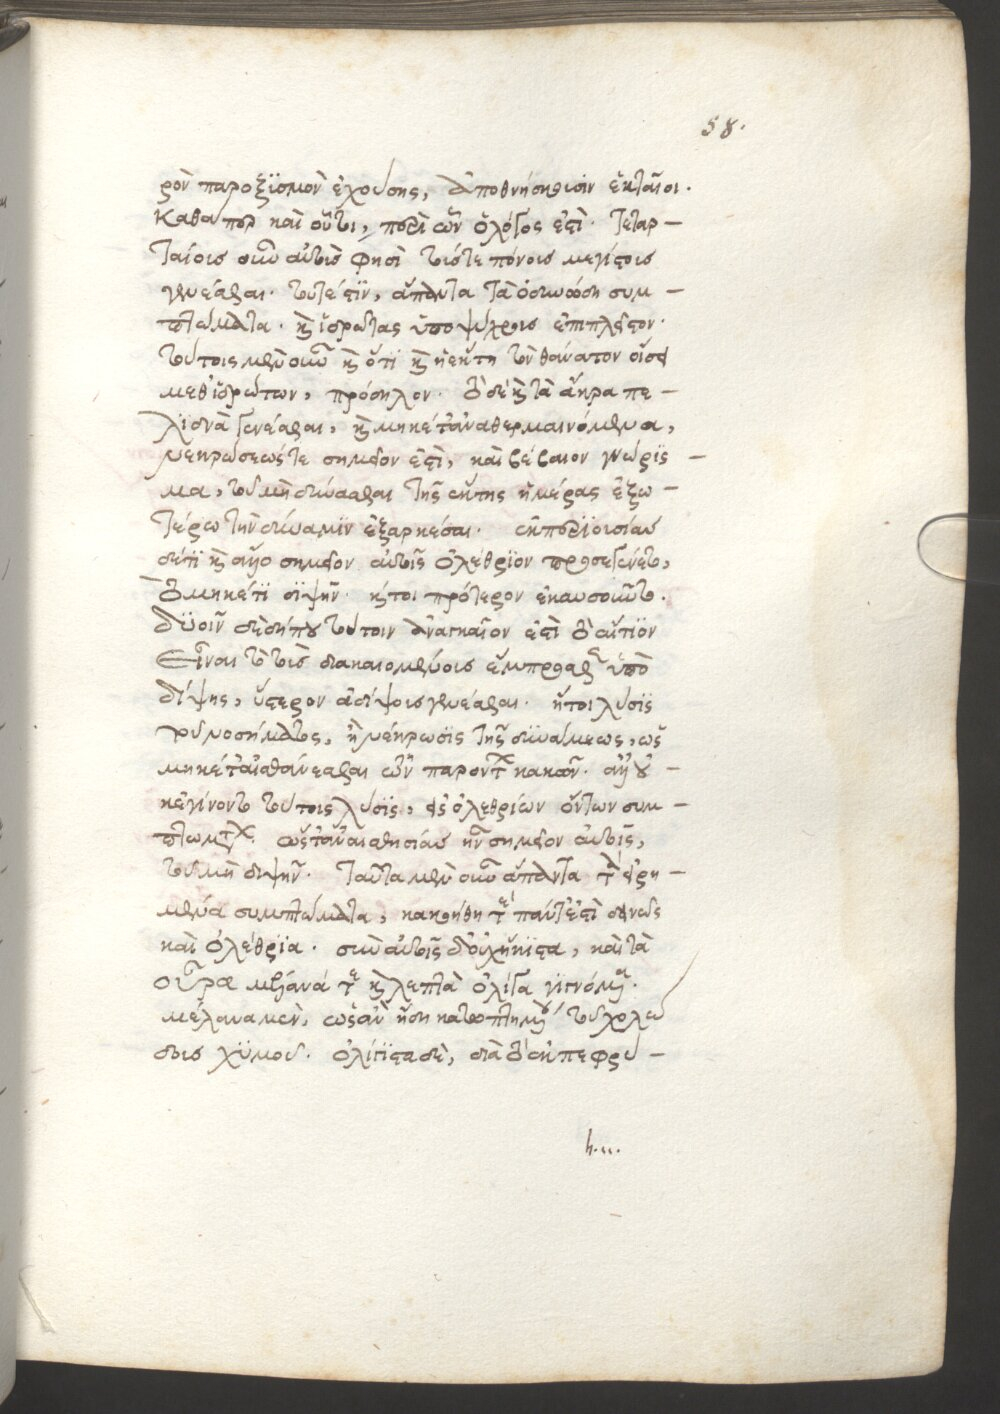 58.
ρὸν παροξϊσμὸν ἐχούσης, ἀποθνήσκουσιν ἑκταῖοι.
Καθάπερ καὶ οὗτοι, περὶ ὧν ὁ λόγος ἐστὶ. Τεταρ-
ταίοις οὖν αὐτοῖς φησὶ τούς τε πόνοις μεγίστοις
γενέσθαι. τουτέστϊν, ἅπαντα τὰ συμ-
πτώματα. καὶ ἱδρῶτας ὑποψύχροις ἐπιπλεῖον.
τούτοις μὲν οὖν καὶ ὅτι καὶ ἡ ἕκτη τὸν θάνατον οἴσει
μεθ' ἱδρώτων, πρόδηλον. τὸ δὲ καὶ τὰ ἄκρα πε-
λϊδνὰ γενέσθαι, καὶ μηκέτ' ἀναθερμαινόμενα,
νεκρώσεώς τε σημεῖον ἐστὶ, καὶ βέβαιον γνώρϊσ-
μα, τοῦ μὴ δύνασθαι τῆς ἕκτης ἡμέρας ἐξω-
τέρω τὴν δύναμϊν ἐξαρκέσαι.
δ' ἔτϊ καὶ ἄλλο σημεῖον αὐτοῖς ὀλέθρϊον προσεγένετο,
τὸ μηκέτϊ δϊψῆν. καίτοι πρότερον ἐκαυσοῦντο.
δυοῖν δὲ δήπου τούτοιν ἀναγκαῖον ἐστὶ τὸ αἴτϊον
εἶναι τοῦ τοῖς διακαιομένοις ἔμπροσθεν ὑπὸ
δίψης, ὕστερον ἀδίψοις γενέσθαι. ἤτοι λύσϊς
τοῦ νοσήματος, ἢ νέκρωσϊς τῆς δυνάμεως, ὡς
μηκέτ' αἰσθάνεσθαι τῶν παρόντων κακῶν. ἀλλ' οὐ-
κ ἐγίνοντο τούτοις λύσϊς, ἐξ ὀλεθρίων ὄντων συμ-
πτωμάτων. ὥστ' ἀναισθησίας ἦν σημεῖον αὐτοῖς,
τὸ μὴ διψῆν. Ταῦτα μὲν οὖν ἅπαντα τὰ εἰρη-
μένα συμπτώματα, κακοήθη τε πάντ' ἐστὶ δεινῶς
καὶ ὀλέθρϊα. σὺν αὐτοῖς δ' οὐχ ἥκϊστα, καὶ τὰ
οὖρα μέλανά τε καὶ λεπτὰ ὀλίγα γιγνόμενα.
μέλανα μὲν, ὡς ἂν ἤδη κατωπτημένου τοῦ χολώ-
δους χϋμοῦ. ὀλίγϊστα δὲ, διὰ τὸ ἐκπεφρυ-
h.ii.